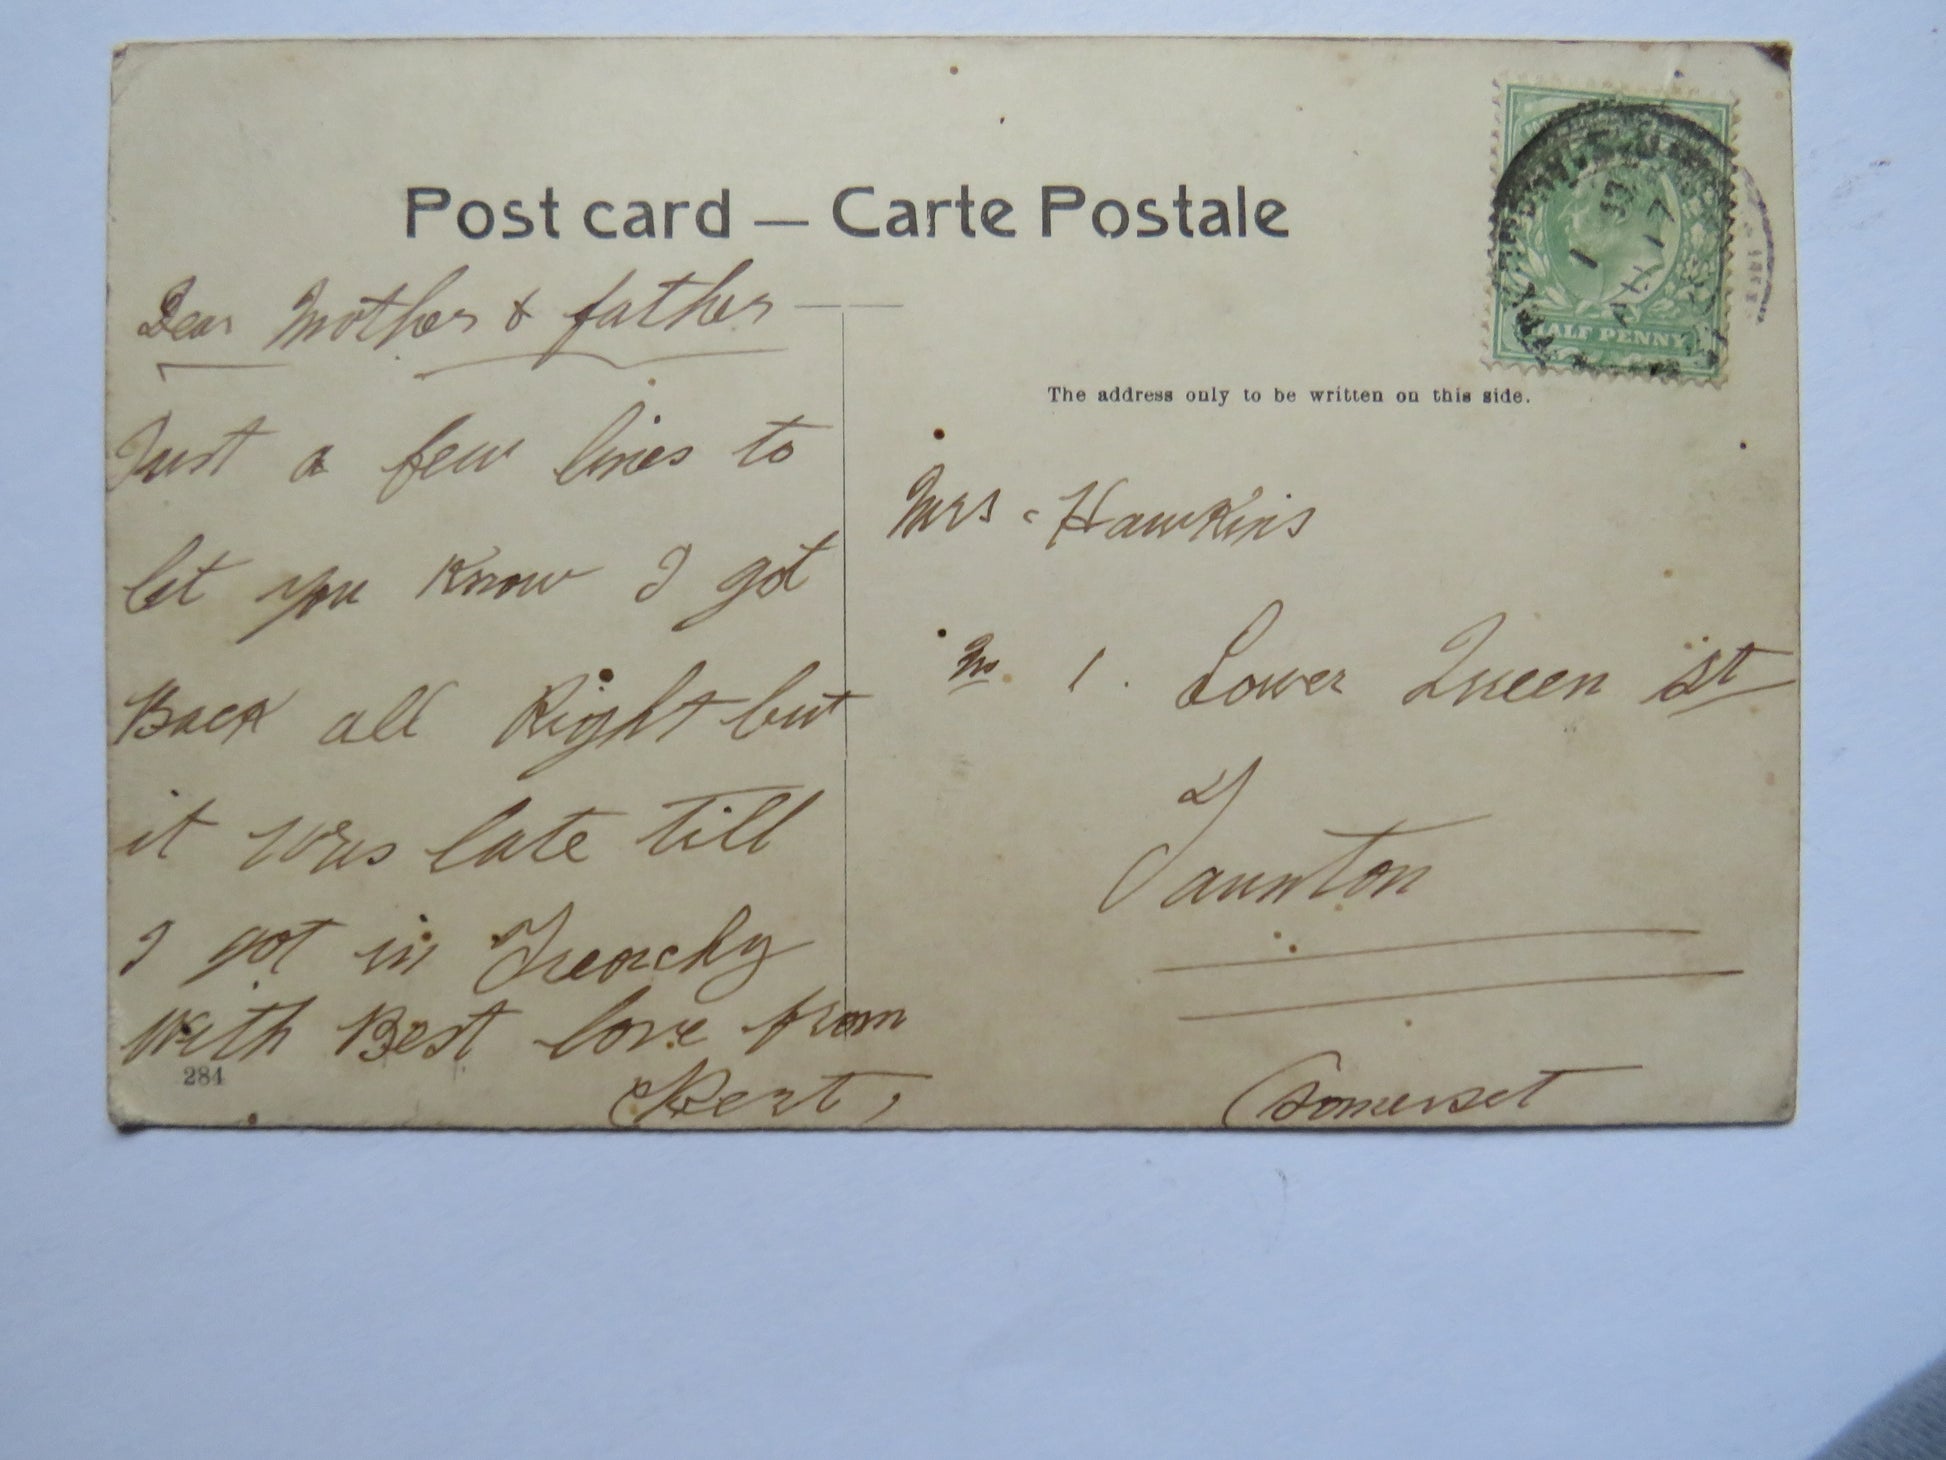 Post card — Carte Postale
HALF PENNY
Dear Mother & father
Just a few lines to
let you Know I got
Back all Right but
it was late till
I got in Frenchy
With Best love from
Bert,
284
The address only to be written on this side.
Mrs Hawkins
No. 1. Lower Queen St
Taunton
Somerset